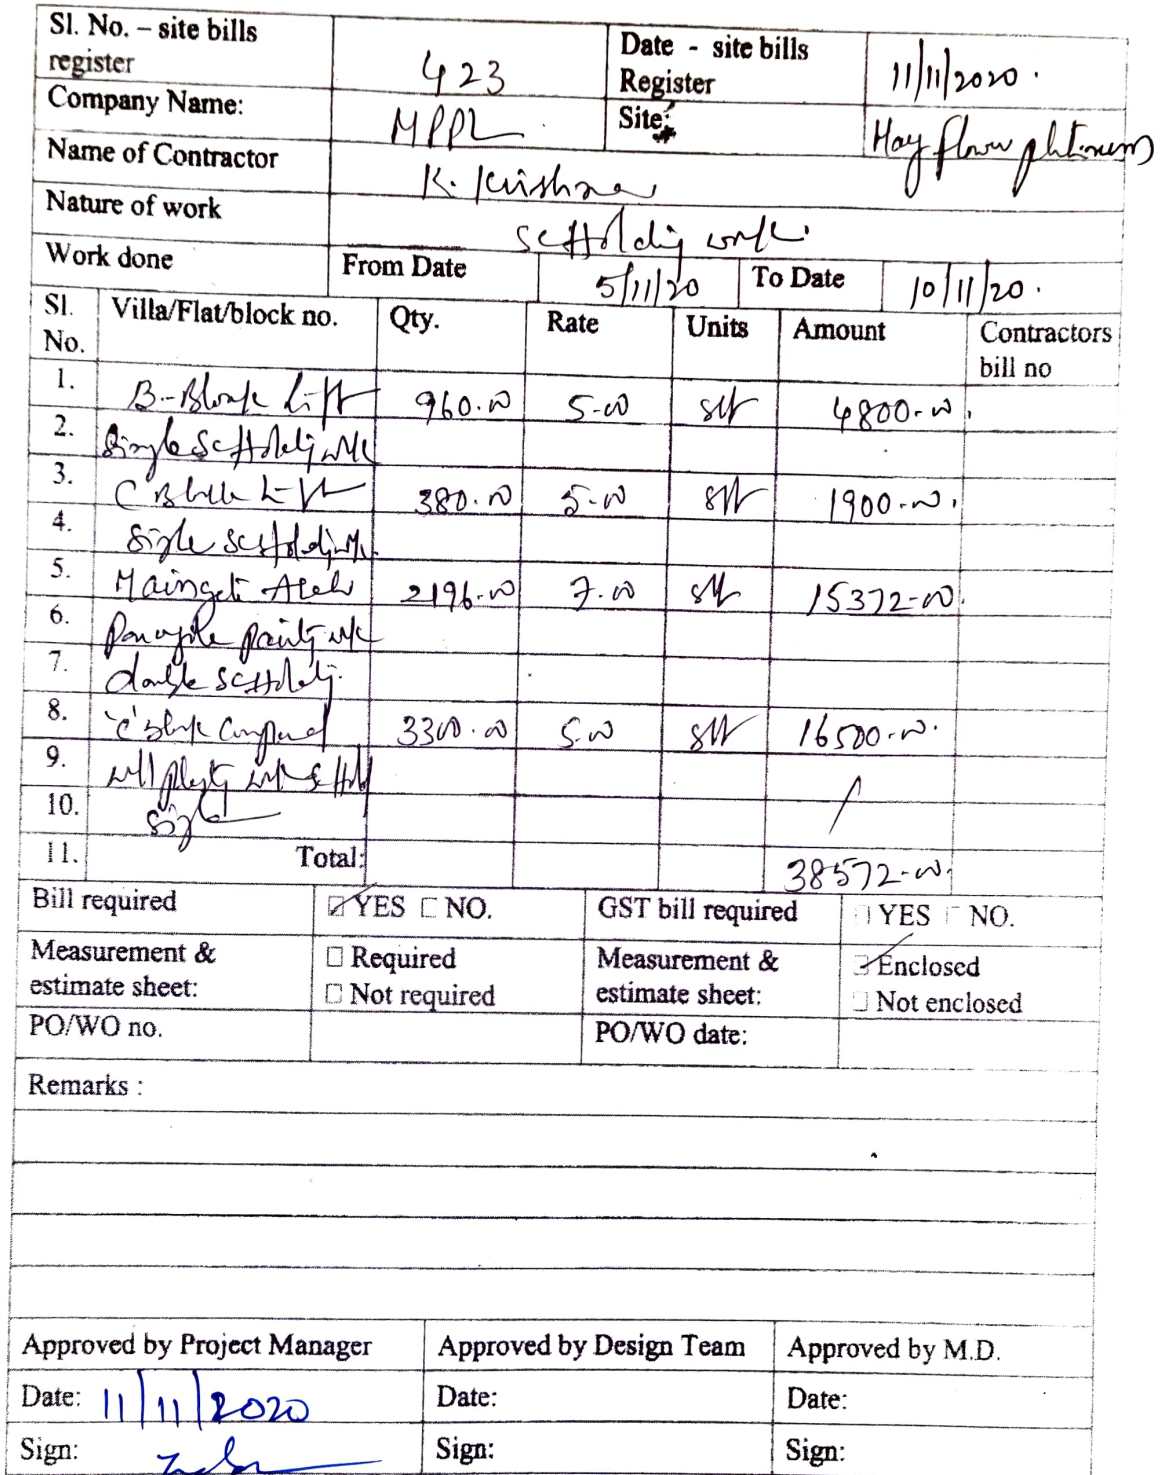 Sl. No. – site bills register 423 Date - site bills Register 11/11/2020.
Company Name: MPPL Site: May flower platinum
Name of Contractor K. Krishna
Nature of work Scffolding work.
Work done From Date 5/11/20 To Date 10/11/20.
Sl. No. Villa/Flat/block no. Qty. Rate Units Amount Contractors bill no
1. B-Block Lift 960.00 5-00 sft 4800-00.
2. Single Scffolding wk
3. C Block Lift 380.00 5-00 sft 1900-00.
4. Single scffolding wk.
5. Maingate 2196-00 7.00 sft 15372-00.
6. painting wk
7. double scffolding.
8. 'C' Block Compound 3300.00 5.00 sft 16500-00.
9. wall work
10. Single
11. Total: 38572-00.
Bill required ☑ YES ☐ NO. GST bill required ☐ YES ☐ NO.
Measurement & estimate sheet: ☐ Required ☐ Not required Measurement & estimate sheet: ☑ Enclosed ☐ Not enclosed
PO/WO no. PO/WO date:
Remarks :
Approved by Project Manager Approved by Design Team Approved by M.D.
Date: 11/11/2020 Date: Date:
Sign: Sign: Sign: